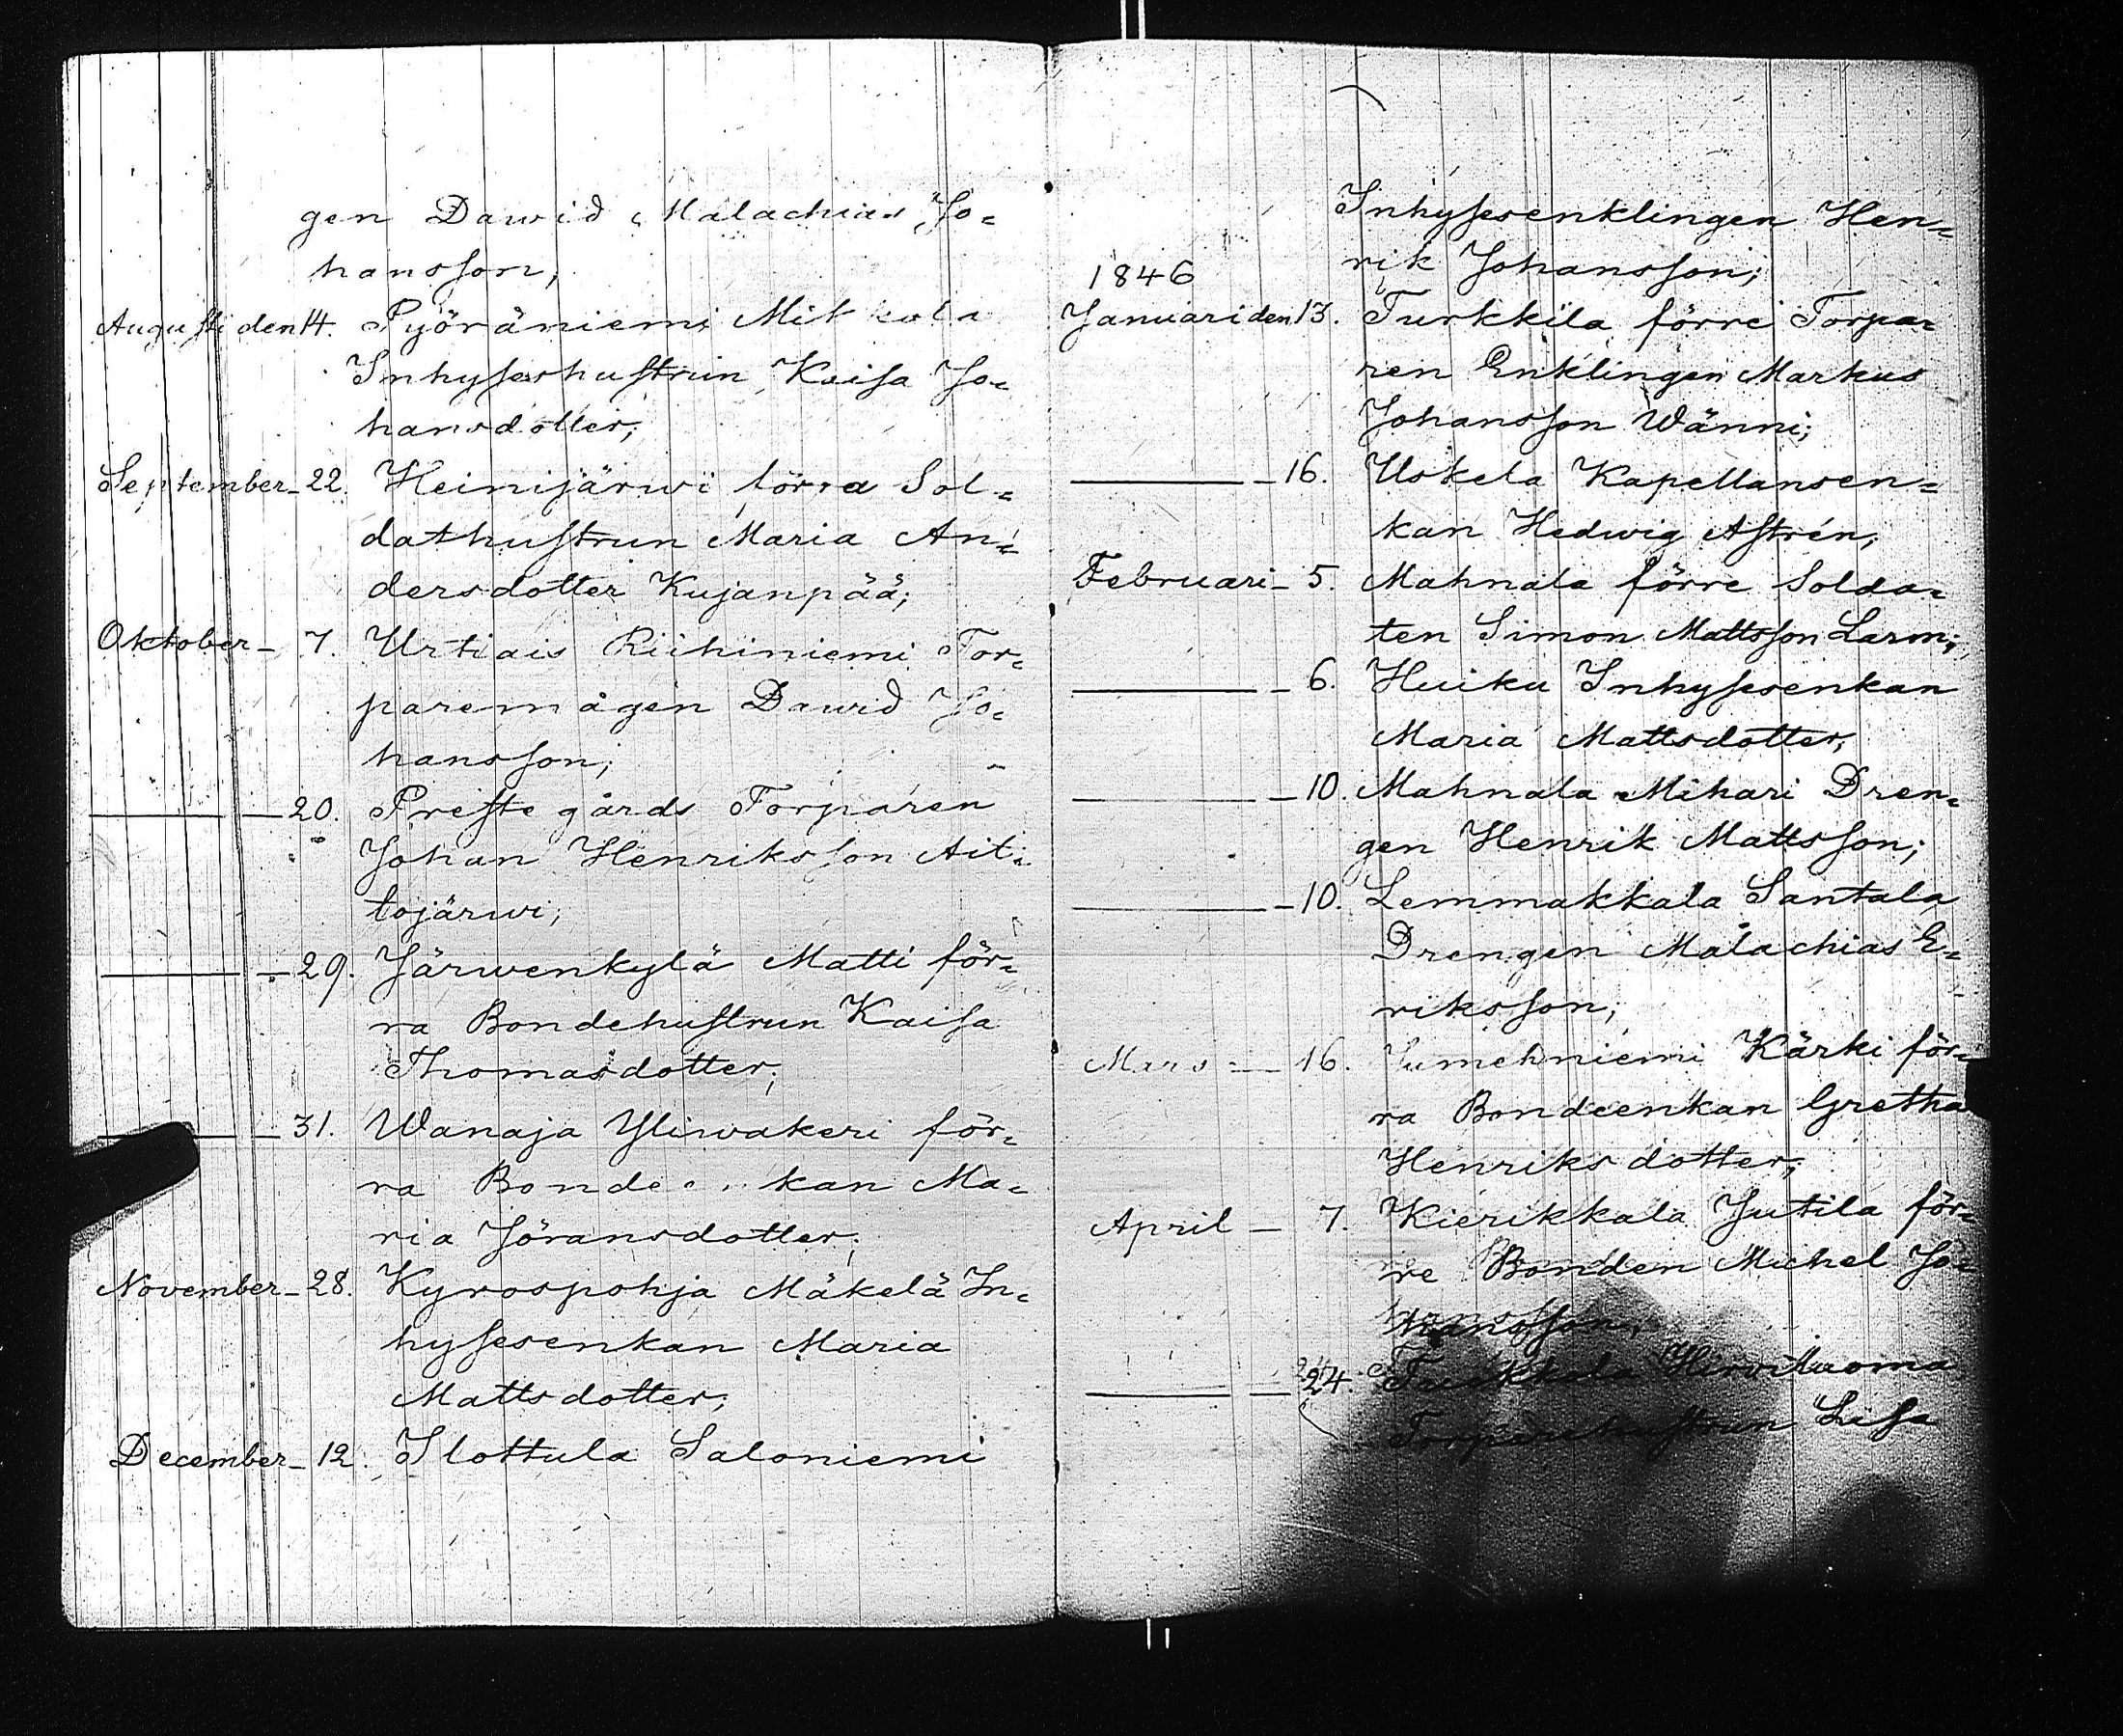 gen Dawid Malachias Jo=
hansson;
Augusti den 14. Pyöräniemi Mikkola
Inhyseshustrun Kaisa Jo=
hansdotter;
September – 22. Heinijärwi förra Sol=
dathustrun Maria An=
dersdotter Kujanpää;
Oktober – 7. Urtiais Riihiniemi Tor=
paremågen Dawid Jo=
hansson;
— – 20. Prestegårds Torparen
Johan Henriksson Ait=
tojärwi;
— – 29. Järwenkylä Matti för=
ra Bondehustrun Kaisa
Thomasdotter;
— – 31. Wanaja Yliwakeri för=
ra Bonde kan Ma=
ria Jöransdotter;
November – 28. Kyrospohja Mäkelä In=
hysesenkan Maria
Mattsdotter;
December – 12. Slottula Saloniemi
Inhysesenklingen Hen=
rik Johansson;
1846
Januari den 13. Turkkila förre Torpa=
ren Enklingen Markus
Johansson Wänni;
— – 16. Uskela Kapellansen=
kan Hedwig Astrén;
Februari – 5. Mahnala förre Solda=
ten Simon Mattsson Larm;
— – 6. Huiku Inhysesenkan
Maria Mattsdotter;
— – 10. Mahnala Mihari Dren=
gen Henrik Mattsson;
— – 10. Lemmakkala Santala
Drengen Malachias E=
riksson;
Mars – 16. Jumehniemi Kärki för=
ra Bondeenkan Gretha
Henriksdotter;
April – 7. Kierikkala Jutila för=
re Bonden Michel Jo=
hansson;
— – 24. Hirwiluoma
Torparehustrun Lisa